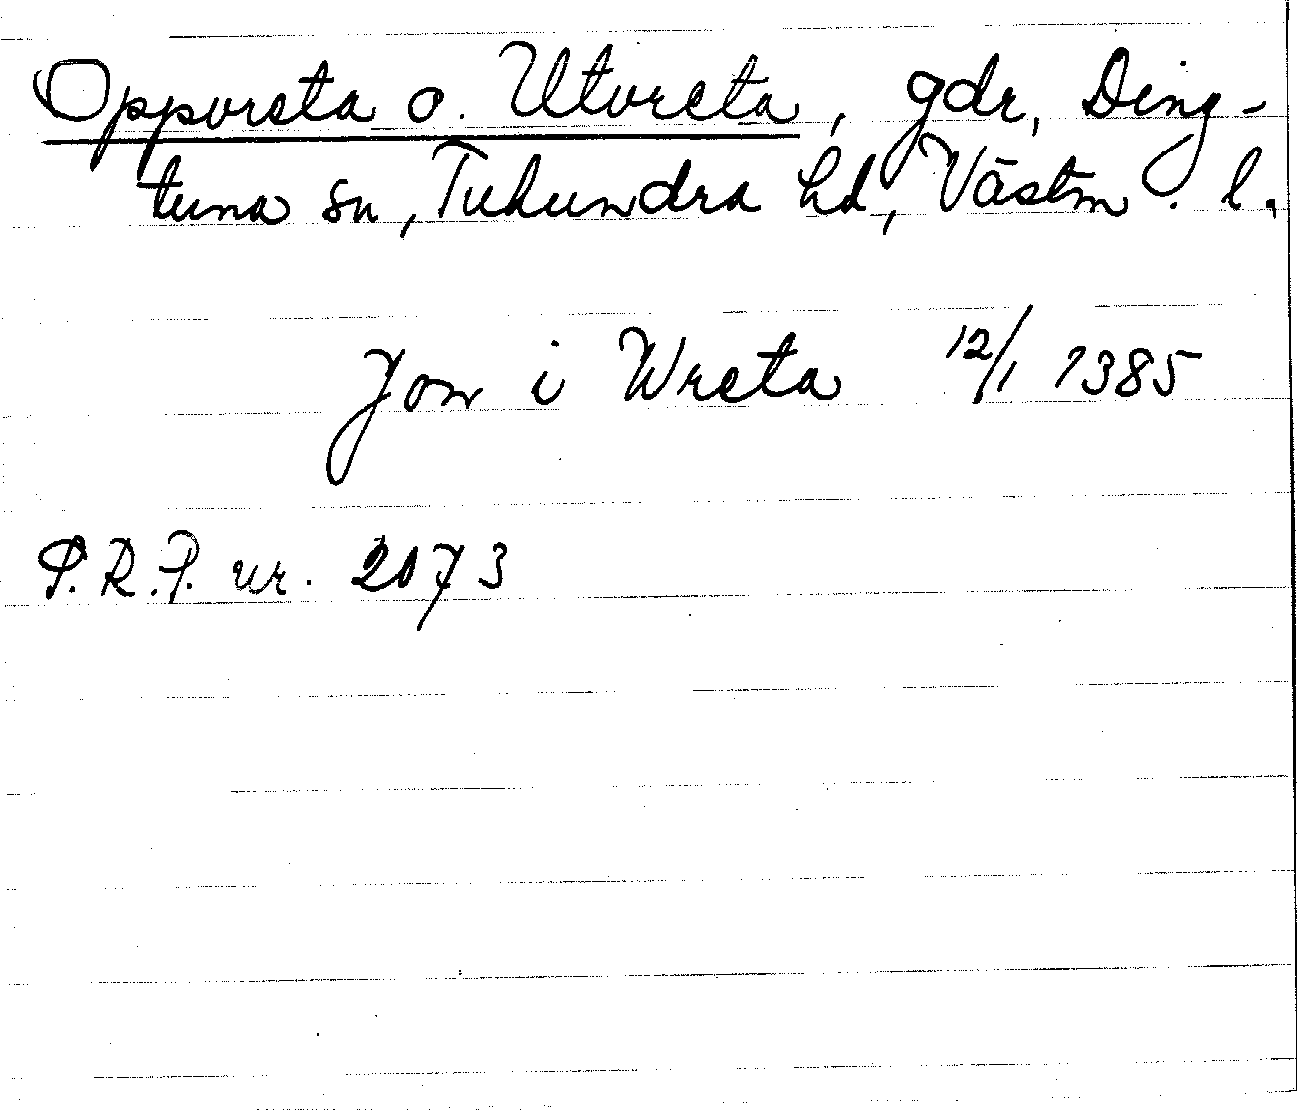 Oppvreta o. Utvreta, gdr, Ding-
tuna sn, Tuhundra hd, Västm. l.
Jon i Wreta 12/1 1385
S.R.P. nr. 2073